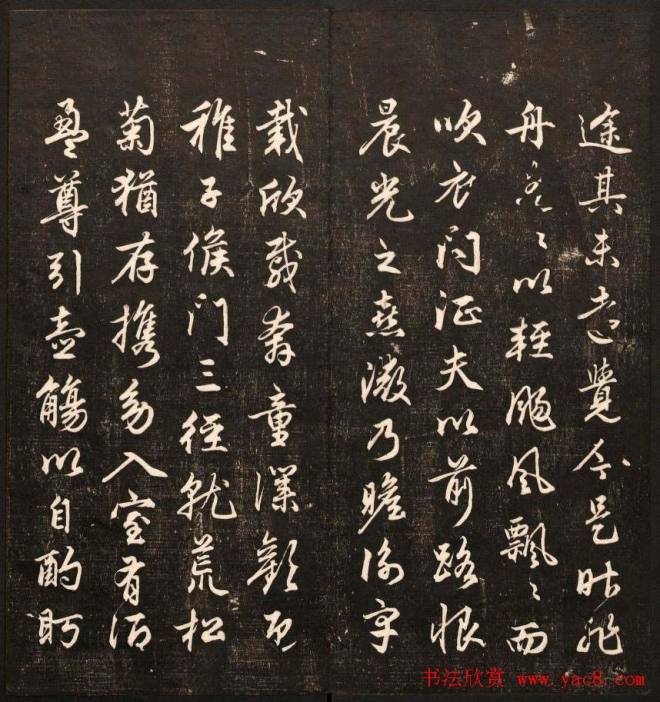 途其未遠覺今是昨非
舟遙〻以輕颺風飄〻而
吹衣問征夫以前路恨
晨光之熹微乃瞻衡宇
載欣載奔童僕歡迎
稚子候門三徑就荒松
菊猶存攜幼入室有酒
盈尊引壺觴以自酌眄
书法欣赏 www.yac8.com